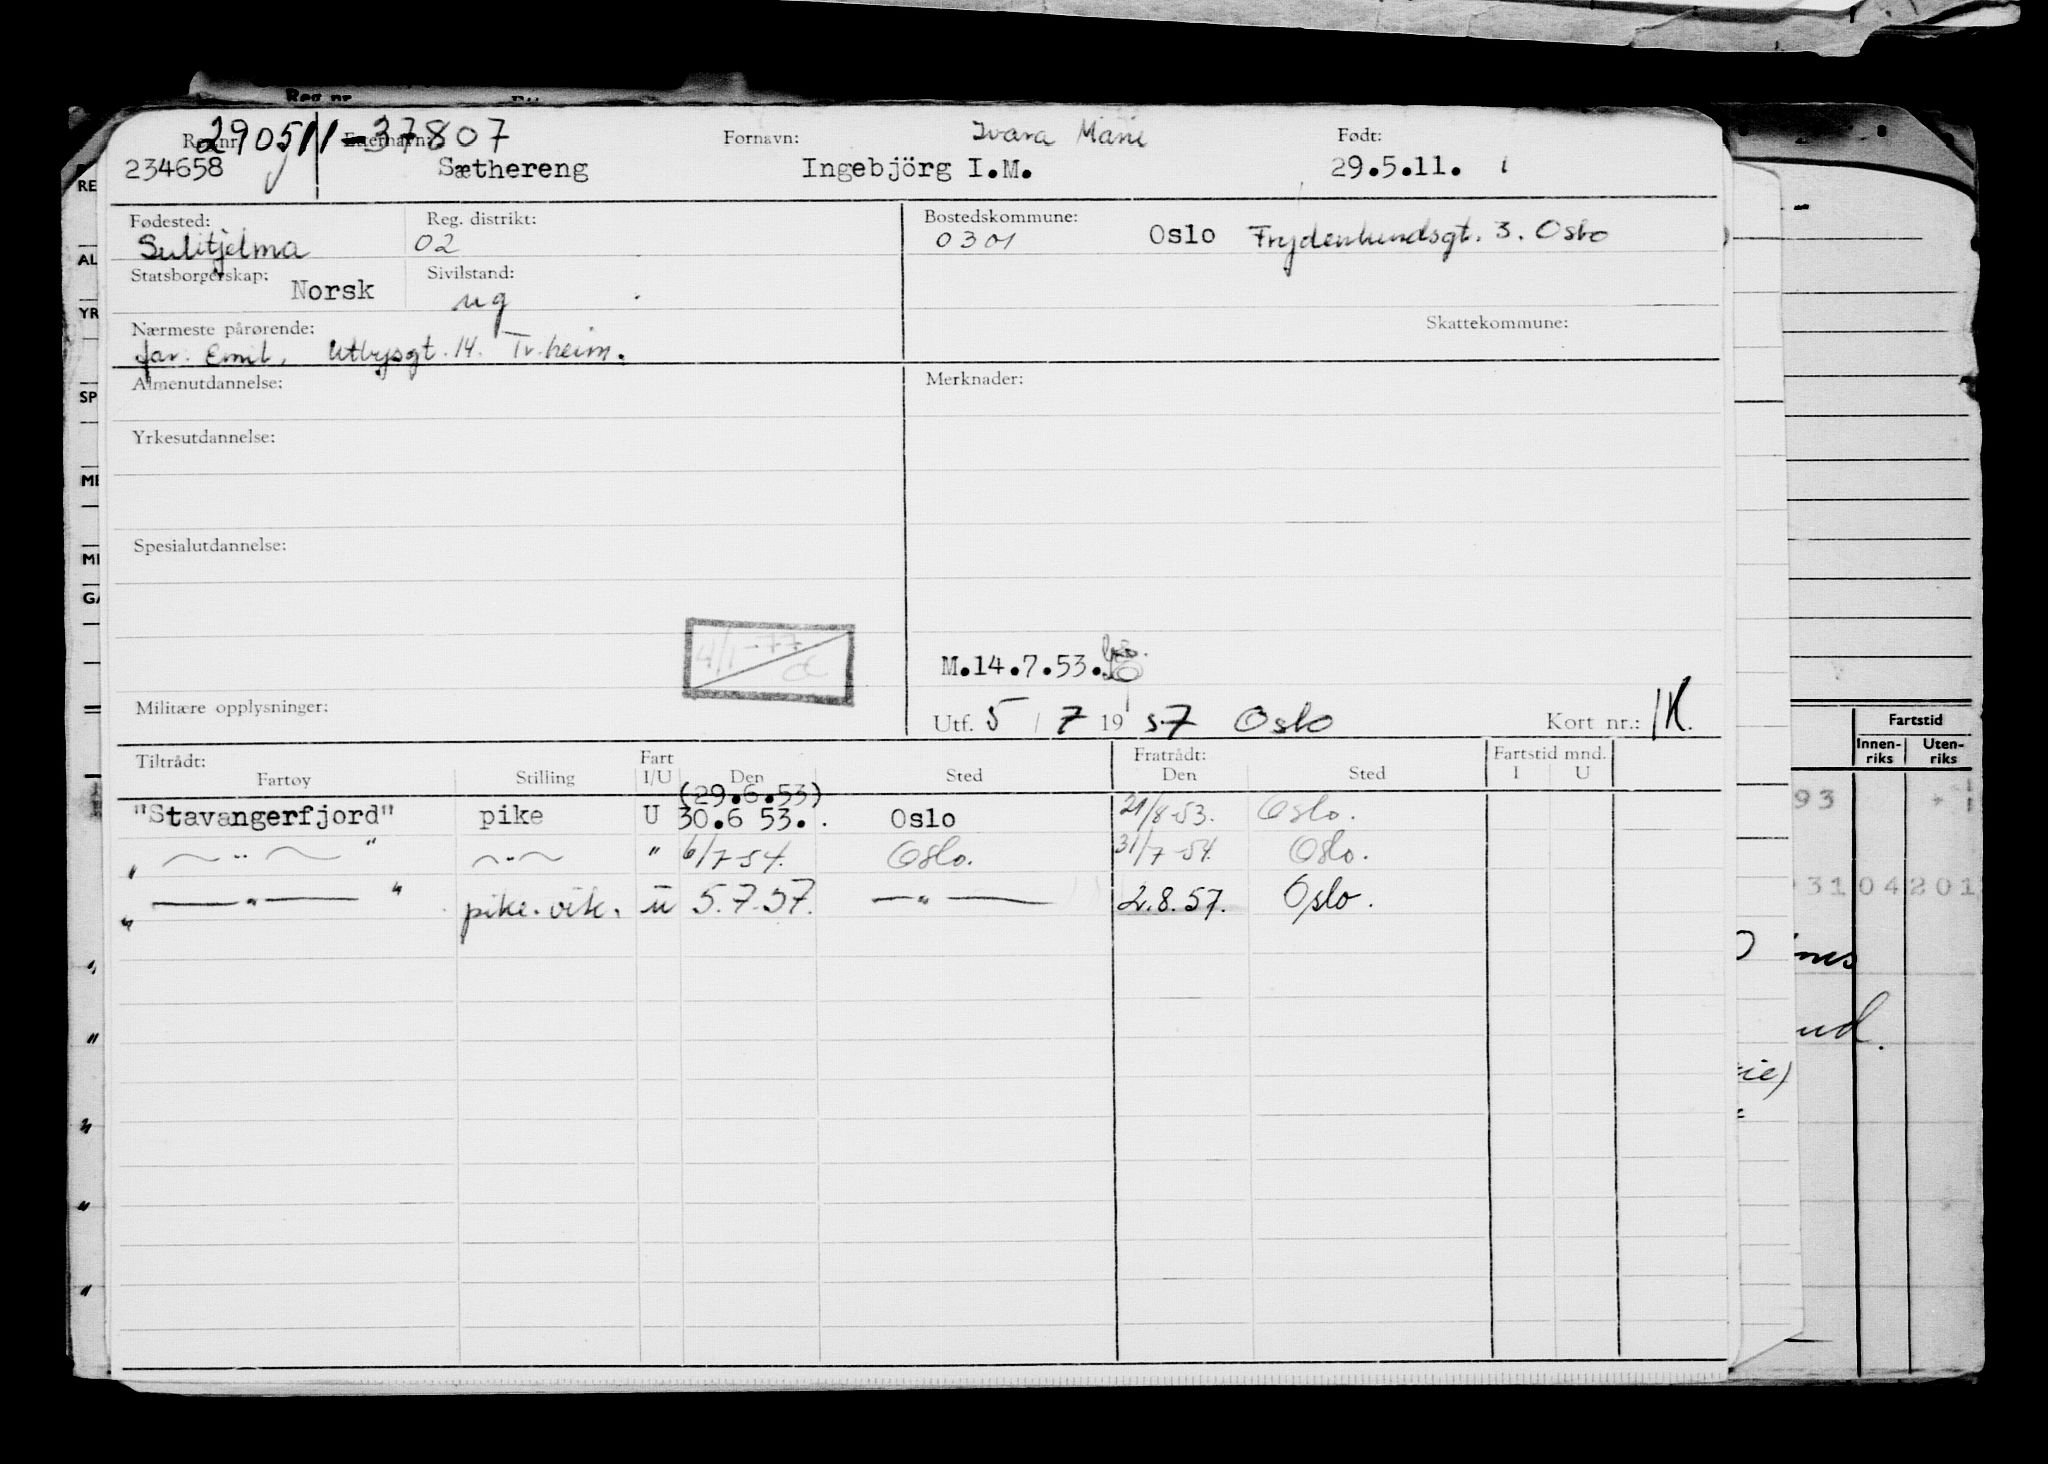 Reg.nr.
290511-37807
Reg nr. Etternavn: Fornavn: Ivara Marie Født:
234658 Sæthereng Ingebjörg I.M. 29.5.11.
Fødested: Reg. distrikt: Bostedskommune:
Sulitjelma 02 0301 Oslo Frydenlundsgt. 3. Oslo
Statsborgerskap: Sivilstand:
Norsk ug
Nærmeste pårørende: Skattekommune:
far. Emil, Utbysgt. 14. Tr.heim.
Almenutdannelse: Merknader:
Yrkesutdannelse:
Spesialutdannelse:
4/1-77
M.14.7.53.
Militære opplysninger: Utf. 5/7 1957 Oslo Kort nr.: 1K.
Tiltrådt: Fart Fratrådt: Fartstid mnd.
Fartøy Stilling I/U Den Sted Den Sted I U
(29.6.53)
"Stavangerfjord" pike U 30.6 53. Oslo 21/8-53. Oslo.
" — " — " — " — " 6/7-54. Oslo. 31/7-54. Oslo.
" — " — " pike. vik. u 5.7.57. — " — 2.8.57. Oslo.
RE
AL
YR
SP
GA
Fartstid
Innen-riks Uten-riks
93
31 04 201